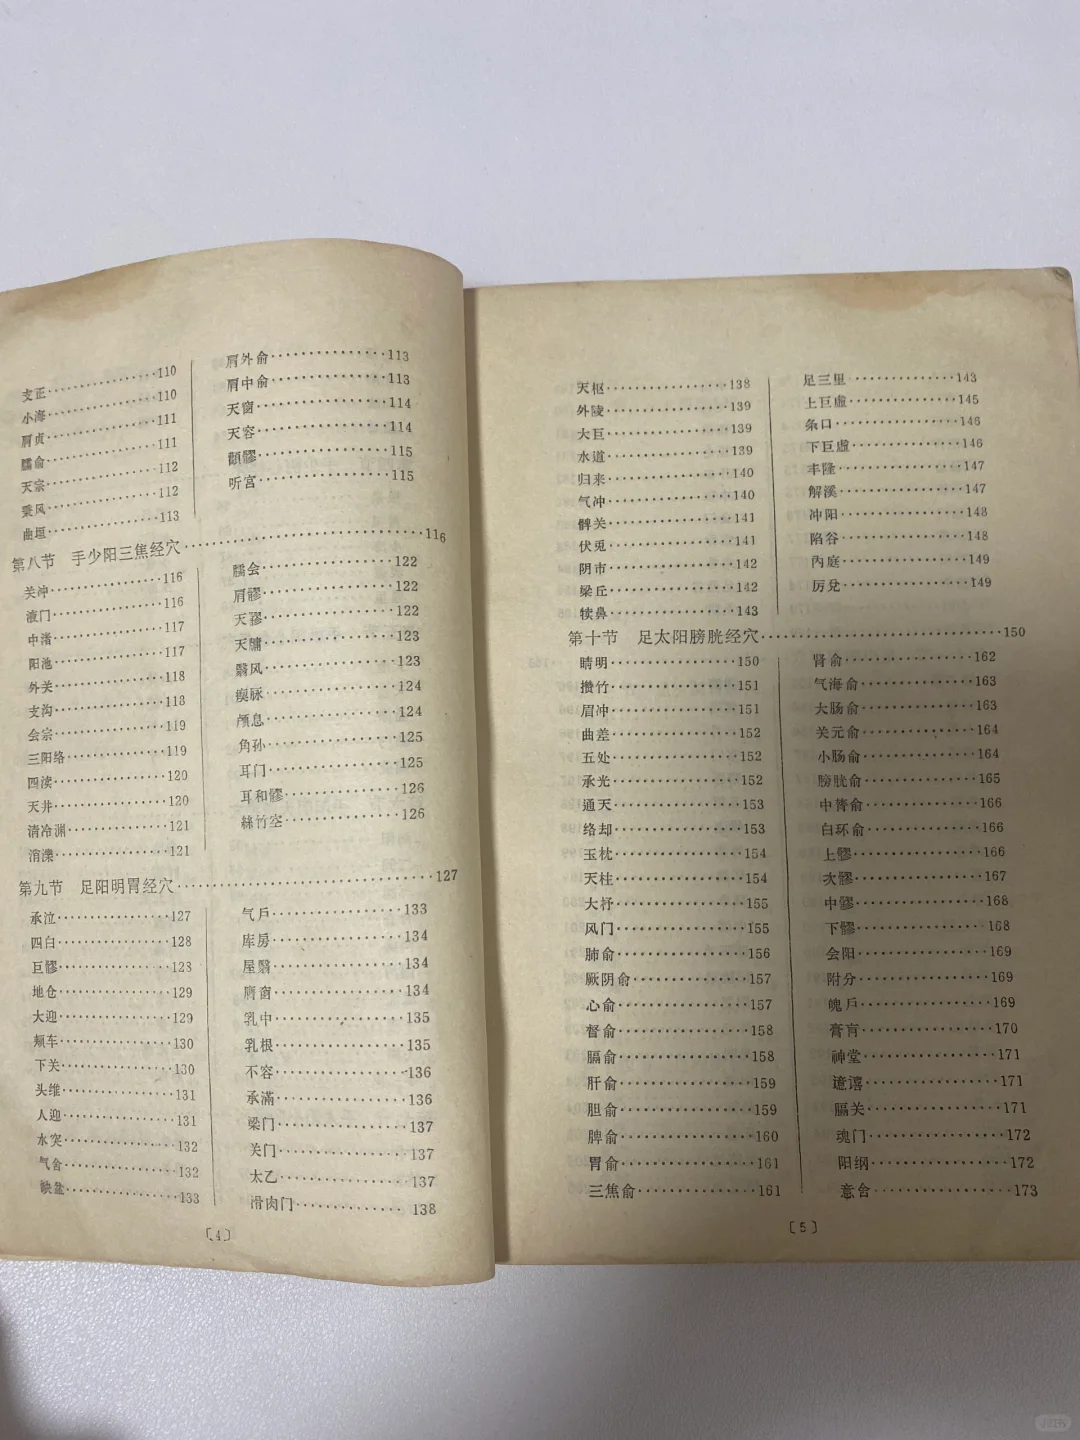 支正……110
小海……110
肩贞……111
臑俞……111
天宗……112
秉风……112
曲垣……113
肩外俞……113
肩中俞……113
天窗……114
天容……114
顴髎……115
听宫……115
第八节 手少阳三焦经穴……116
关冲……116
液门……116
中渚……117
阳池……117
外关……118
支沟……118
会宗……119
三阳络……119
四渎……120
天井……120
清冷渊……121
消濼……121
臑会……122
肩髎……122
天髎……122
天牖……123
翳风……123
瘈脉……124
颅息……124
角孙……125
耳门……125
耳和髎……126
絲竹空……126
第九节 足阳明胃经穴……127
承泣……127
四白……128
巨髎……128
地仓……129
大迎……129
颊车……130
下关……130
头维……131
人迎……131
水突……132
气舍……132
缺盆……133
气戶……133
库房……134
屋翳……134
膺窗……134
乳中……135
乳根……135
不容……136
承滿……136
梁门……137
关门……137
太乙……137
滑肉门……138
〔4〕
天枢……138
外陵……139
大巨……139
水道……139
归来……140
气冲……140
髀关……141
伏兎……141
阴市……142
梁丘……142
犊鼻……143
足三里……143
上巨虚……145
条口……146
下巨虚……146
丰隆……147
解溪……147
冲阳……148
陷谷……148
內庭……149
厉兑……149
第十节 足太阳膀胱经穴……150
睛明……150
攒竹……151
眉冲……151
曲差……152
五处……152
承光……152
通天……153
络却……153
玉枕……154
天柱……154
大抒……155
风门……155
肺俞……156
厥阴俞……157
心俞……157
督俞……158
膈俞……158
肝俞……159
胆俞……159
脾俞……160
胃俞……161
三焦俞……161
肾俞……162
气海俞……163
大肠俞……163
关元俞……164
小肠俞……164
膀胱俞……165
中膂俞……166
白环俞……166
上髎……166
次髎……167
中髎……168
下髎……168
会阳……169
附分……169
魄戶……169
膏肓……170
神堂……171
譩譆……171
膈关……171
魂门……172
阳纲……172
意舍……173
〔5〕